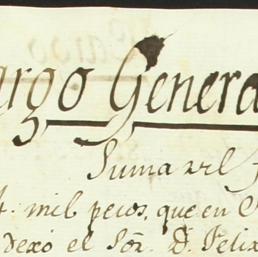 argo Genera
Suma
4. mil pesos, que en
dexó el Sõr. D. Felix